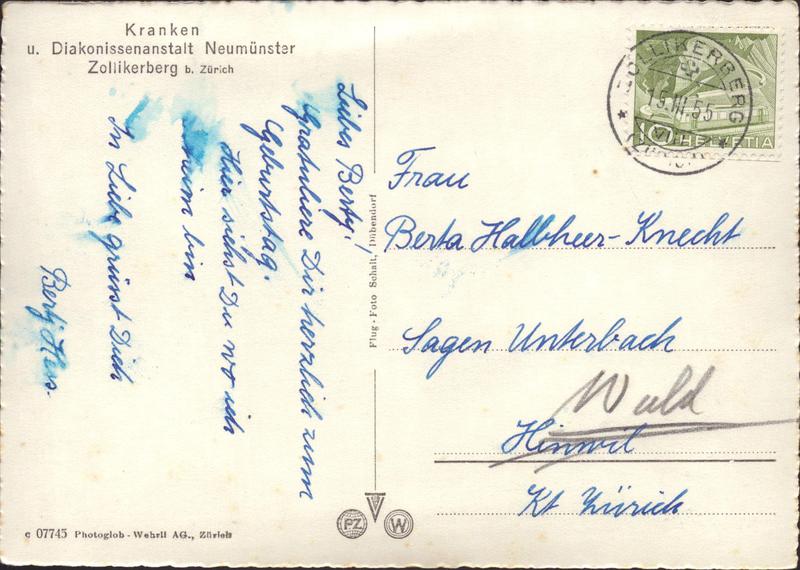 Kranken
u. Diakonissenanstalt Neumünster
Zollikerberg b. Zürich
Liebes Berty!
Gratuliere Dir herzlich zum
Geburtstag.
Hier siehst Du wo ich
daheim bin
In Liebe grüsst Dich
Berty Hess.
Flug-Foto Schalt, Dübendorf
c 07745 Photoglob-Wehrli AG., Zürich
PZ W
ZOLLIKERBERG
III.55
(ZÜRICH)
10 HELVETIA
Frau
Berta Halbheer-Knecht
Sagen Unterbach
Wald
Hinwil
Kt Zürich